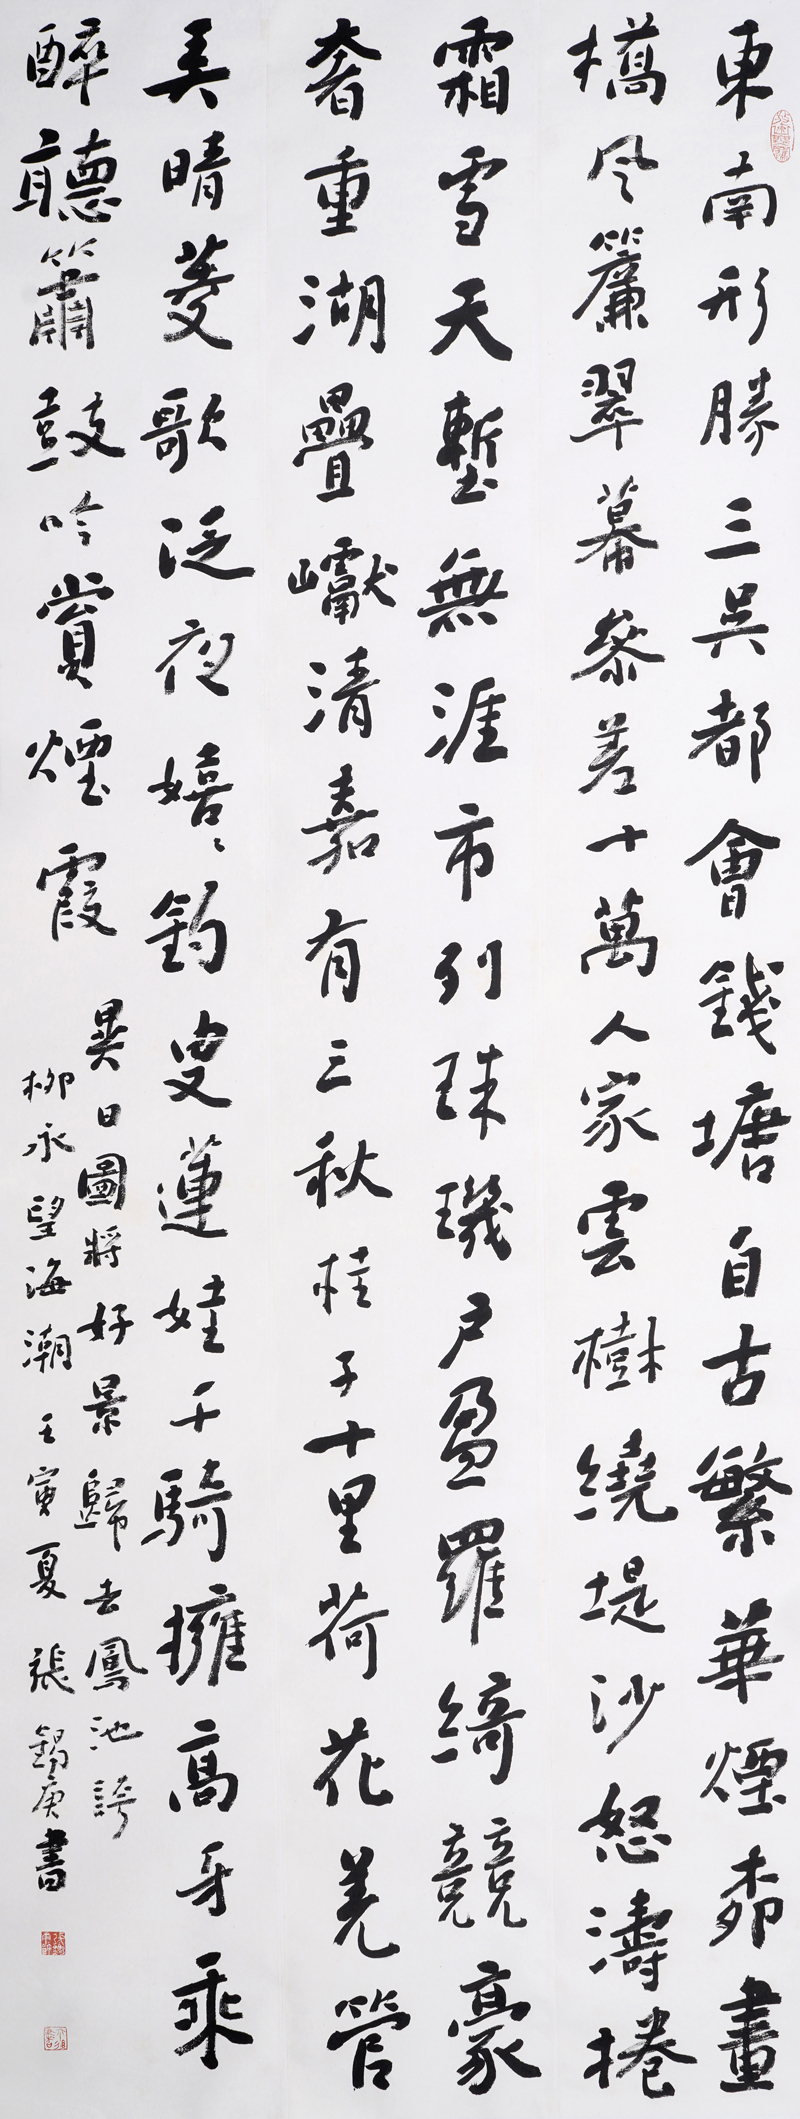 東南形勝三吳都會錢塘自古繁華煙柳畫
橋風簾翠幕參差十萬人家雲樹繞堤沙怒濤捲
霜雪天塹無涯市列珠璣戶盈羅綺競豪
奢重湖疊巘清嘉有三秋桂子十里荷花羌管
弄晴菱歌泛夜嬉〻釣叟蓮娃千騎擁高牙乘
醉聽簫鼓吟賞煙霞
異日圖將好景歸去鳳池誇
柳永望海潮壬寅夏張錫庚書